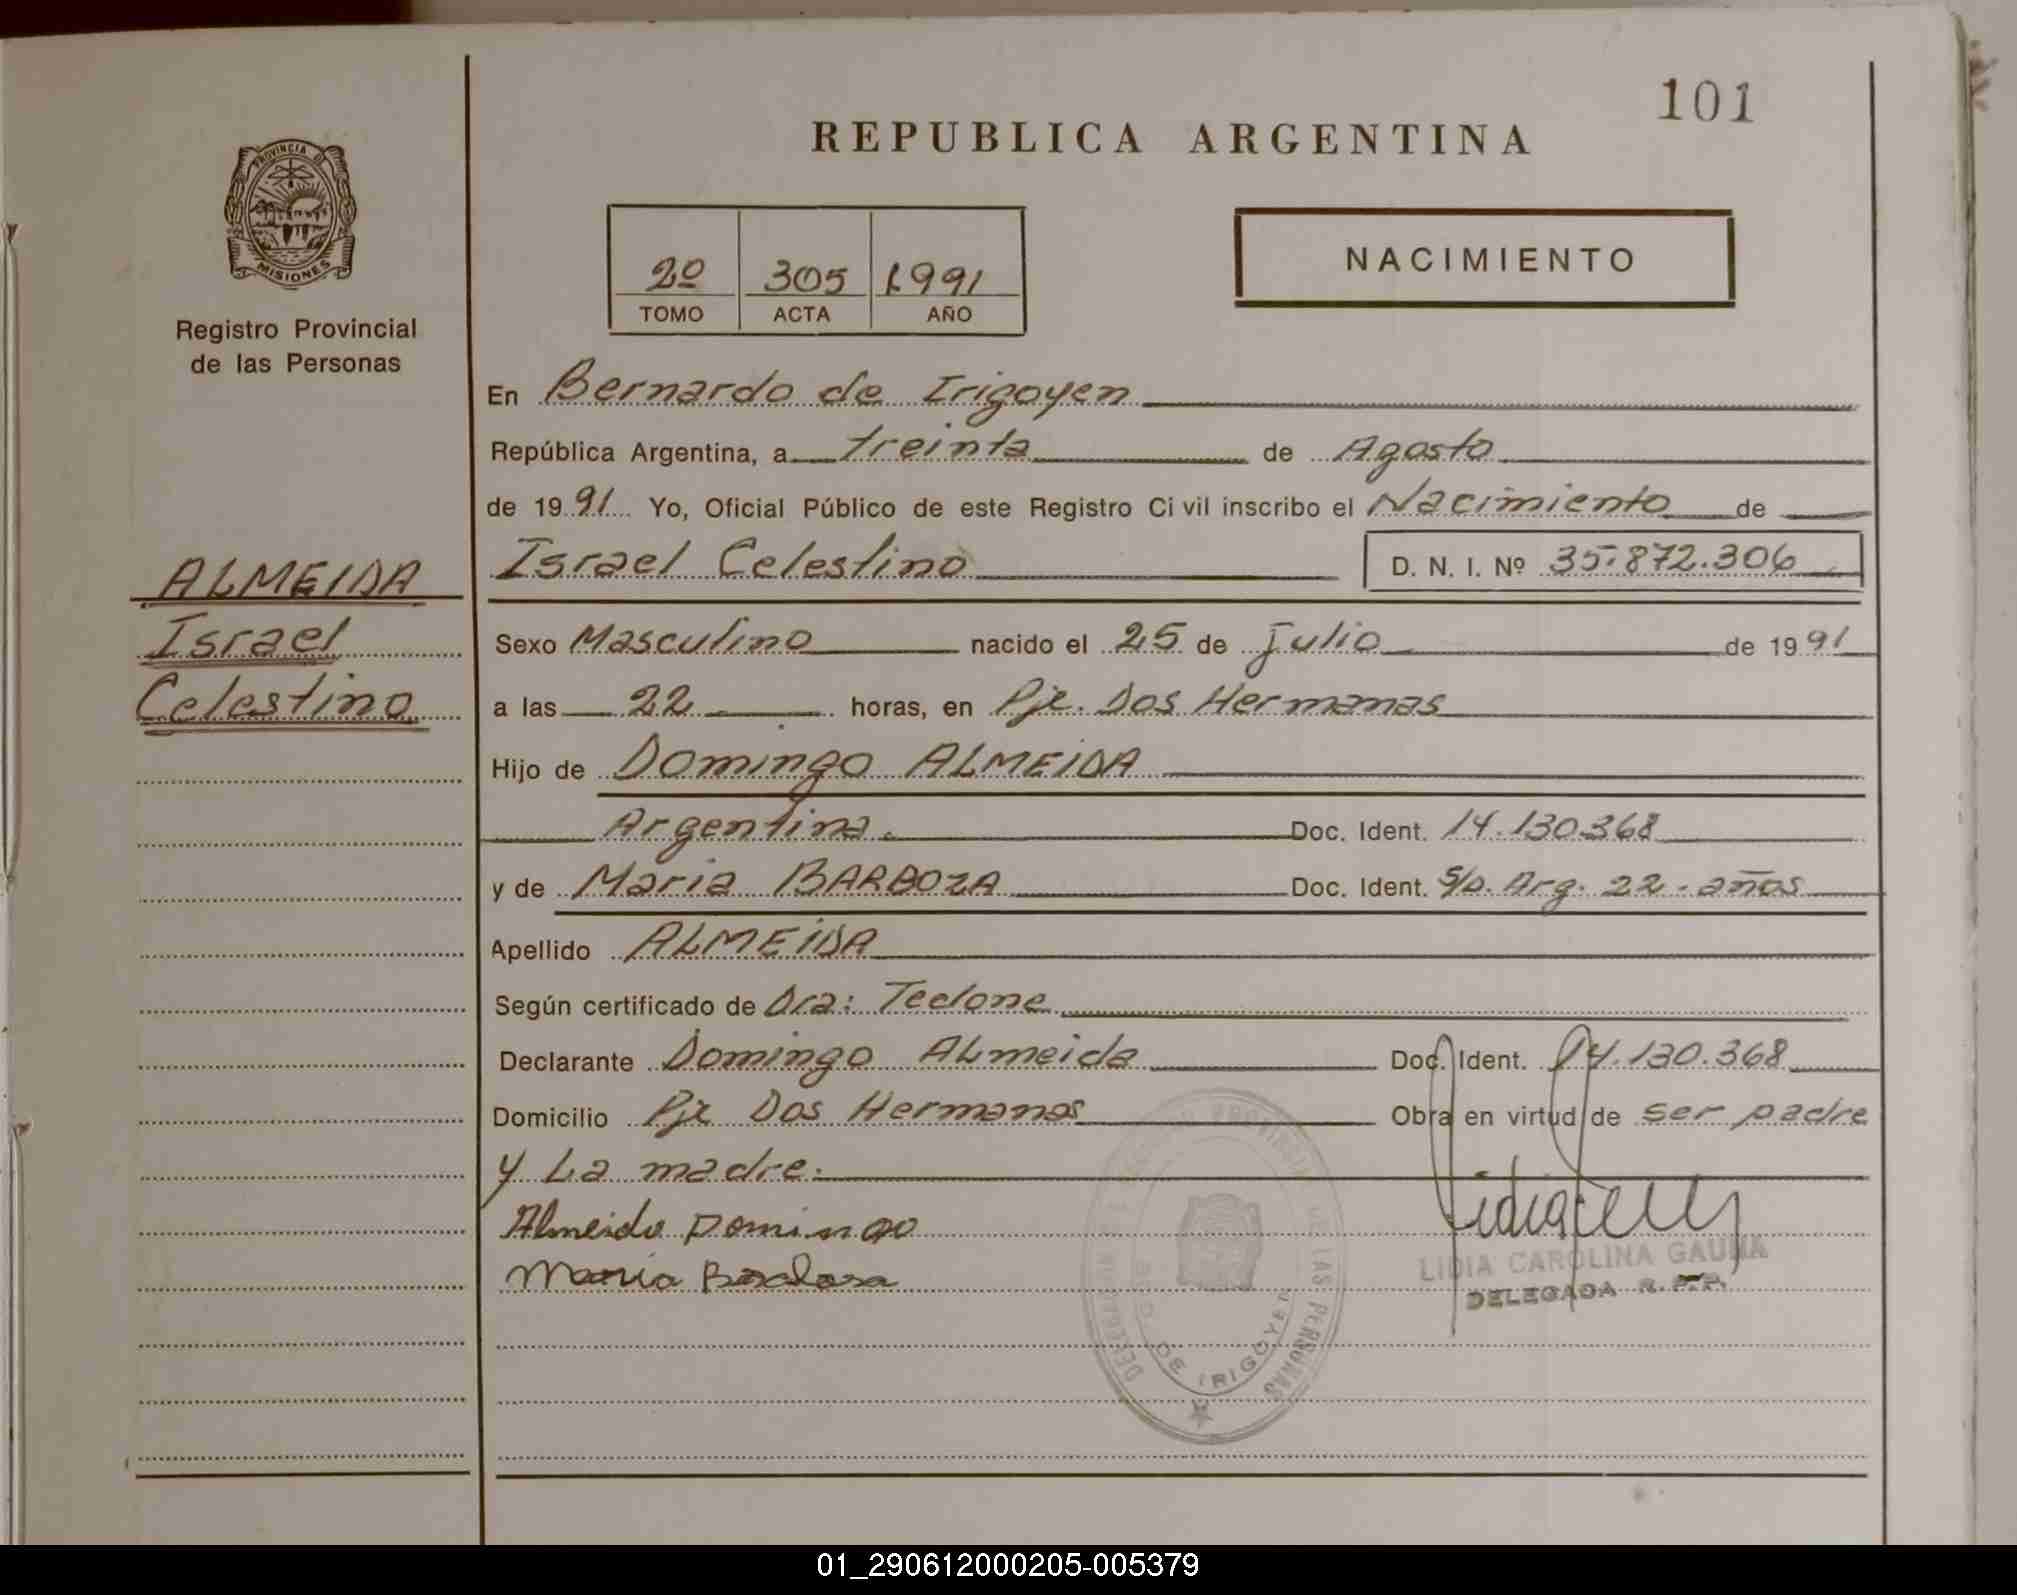 101
REPUBLICA ARGENTINA
PROVINCIA DE
MISIONES
Registro Provincial
de las Personas
2º 305 1991
TOMO ACTA AÑO
NACIMIENTO
En Bernardo de Irigoyen
República Argentina, a treinta de Agosto
de 1991 Yo, Oficial Público de este Registro Civil inscribo el Nacimiento de
Israel Celestino D. N. I. Nº 35.872.306
ALMEIDA
Israel
Celestino
Sexo Masculino nacido el 25 de Julio de 1991
a las 22 horas, en Pje. Dos Hermanas
Hijo de Domingo ALMEIDA
Argentina. Doc. Ident. 14.130.368
y de Maria BARBOZA Doc. Ident. S/D. Arg. 22 - años
Apellido ALMEIDA
Según certificado de Dra: Teclone
Declarante Domingo ALmeida Doc. Ident. 14.130.368
Domicilio Pje Dos Hermanas Obra en virtud de ser padre
y La madre.
Almeida Domingo
Maria Barbosa
LIDIA CAROLINA GAUNA
DELEGADA R.P.P.
DE IRIGOYEN
01_290612000205-005379